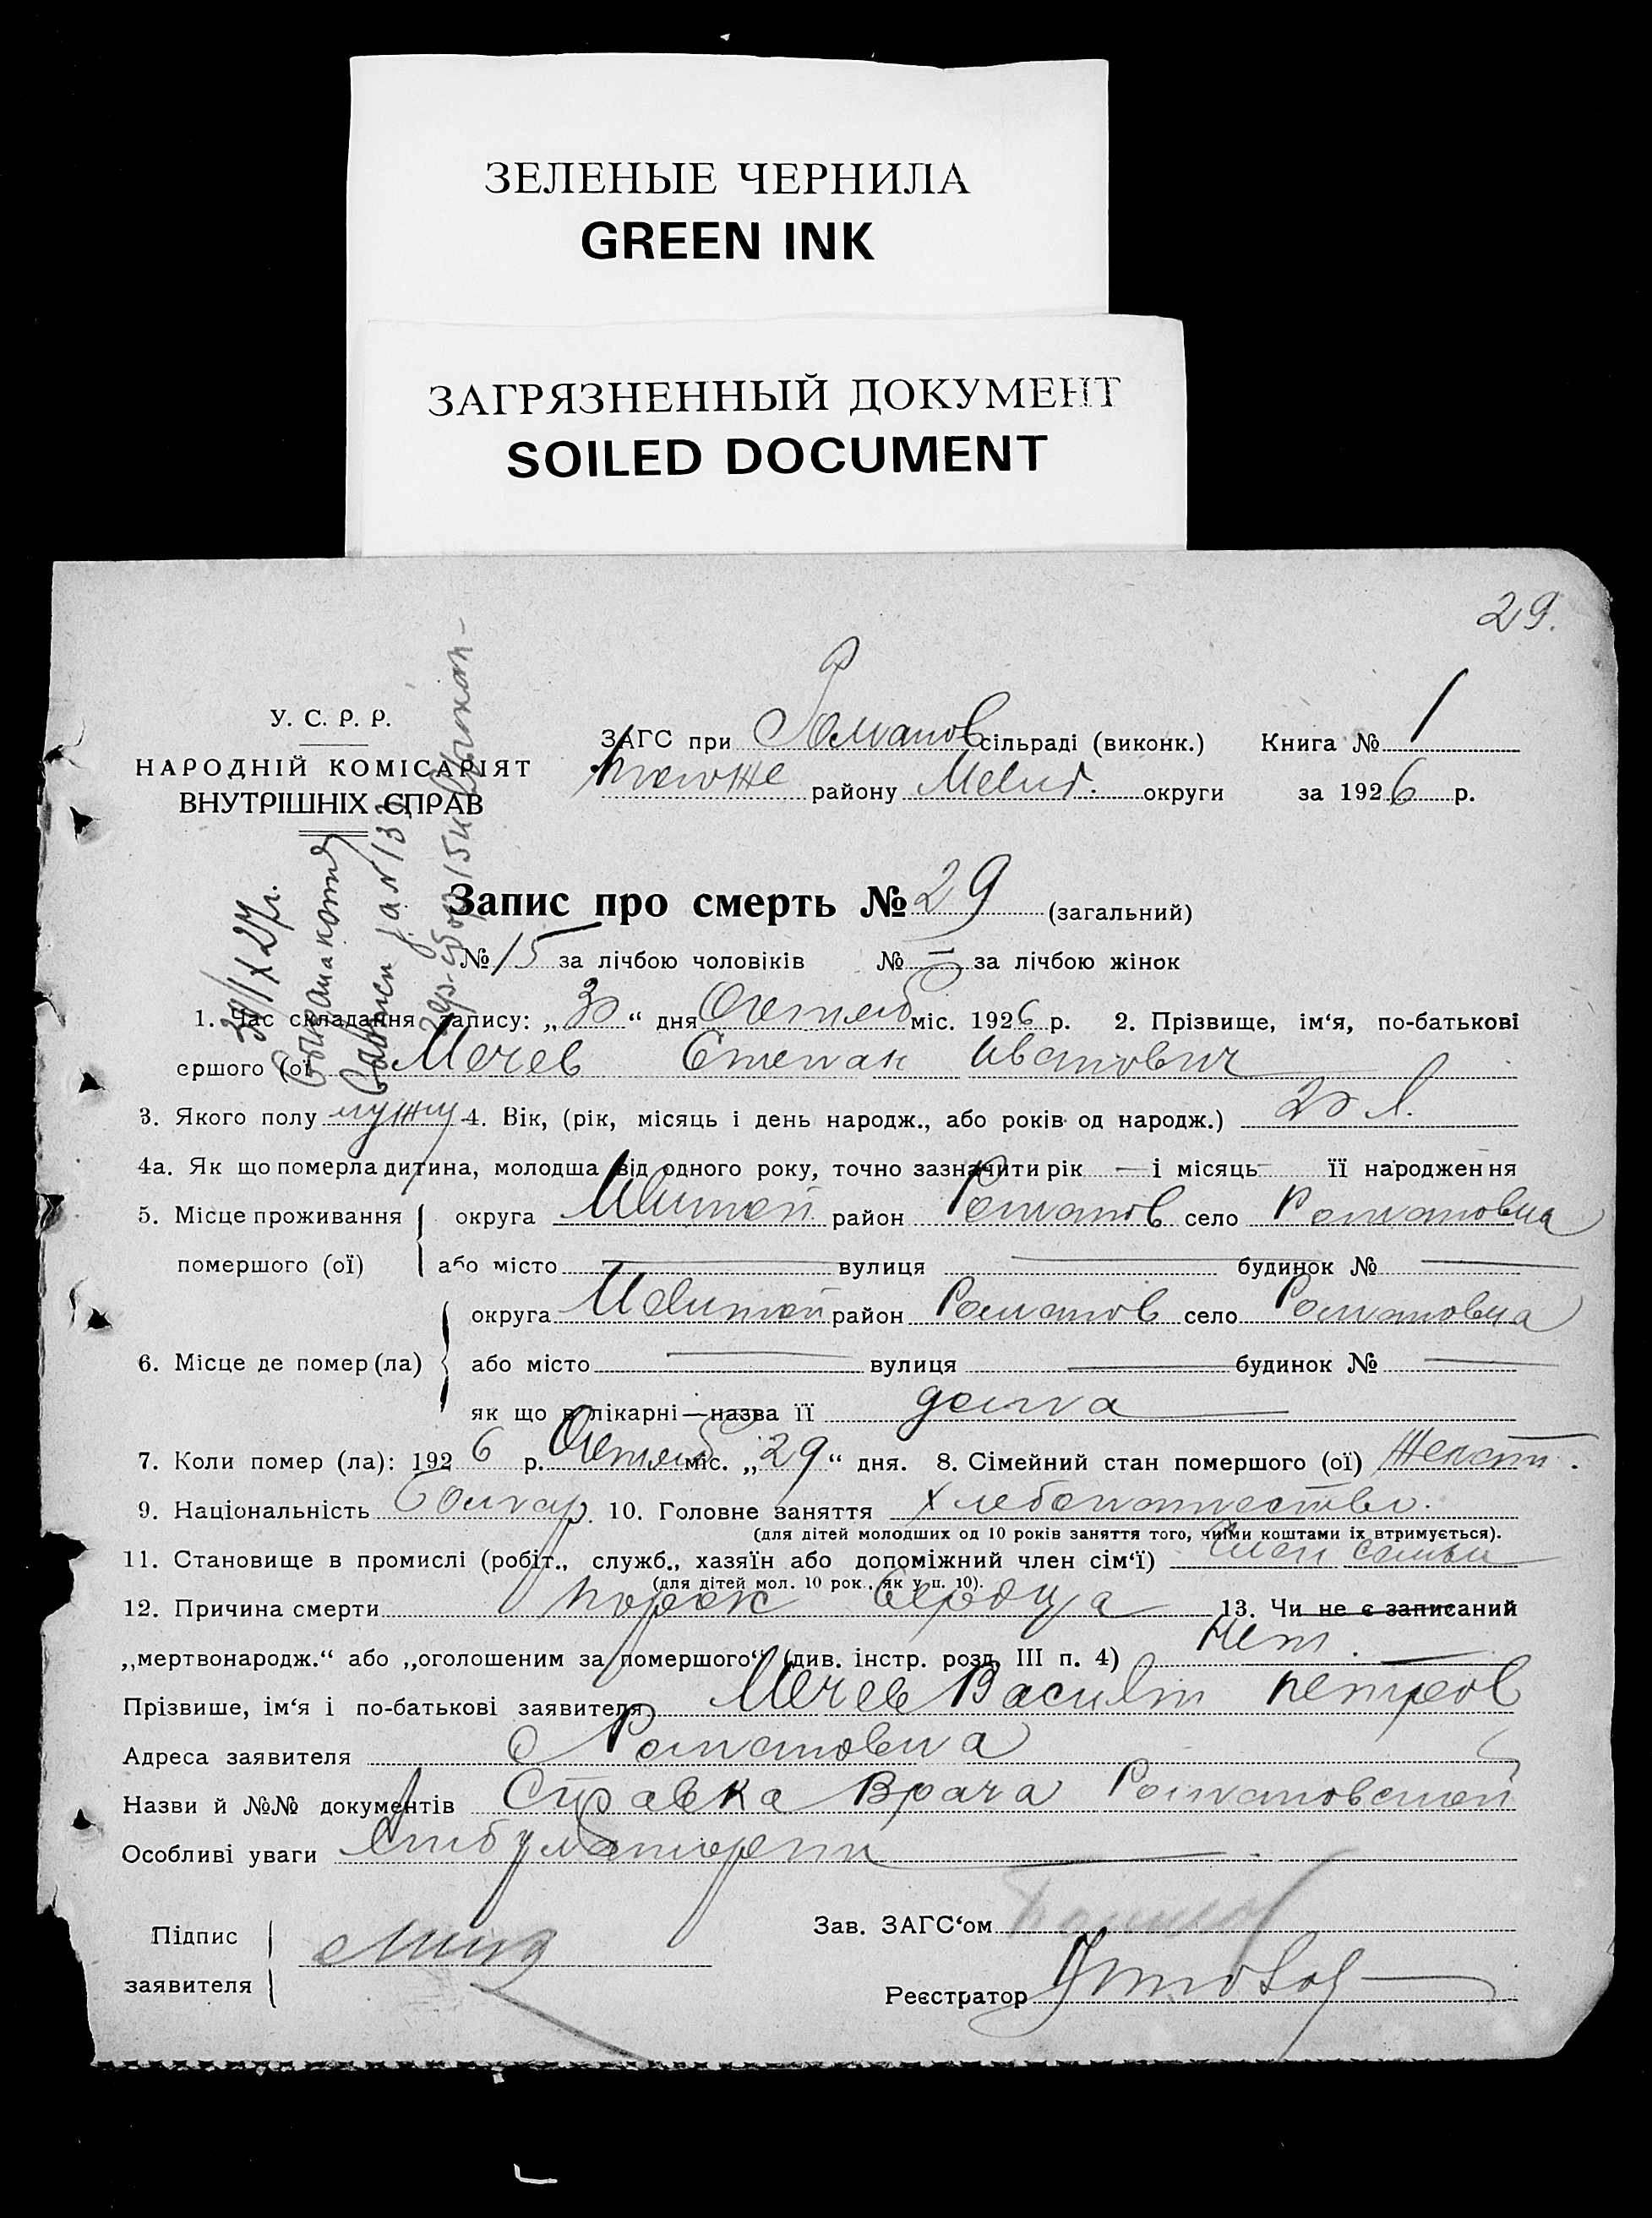 ЗЕЛЕНЫЕ ЧЕРНИЛА
GREEN INK
ЗАГРЯЗНЕННЫЙ ДОКУМЕНТ
SOILED DOCUMENT
29.
У. С. Р. Р.
НАРОДНІЙ КОМІСАРІЯТ
ВНУТРІШНІХ СПРАВ
ЗАГС при Романов сільраді (виконк.) Книга № 1
тогоже району Мелит. округи за 1926 р.
Запис про смерть № 29 (загальний)
№ 15 за лічбою чоловіків № — за лічбою жінок
1. Час складання запису: „30“ дня Октяб міс. 1926 р. 2. Прізвище, ім‘я, по-батькові
ершого (ої Мечев Степан Иванович
3. Якого полу мужч 4. Вік, (рік, місяць і день народж., або років од народж.) 20 л.
4а. Як що померла дитина, молодша від одного року, точно зазначити рік — і місяць — її народження
5. Місце проживання округа Мелитоп район Романов село Романовка
помершого (ої) або місто — вулиця — будинок № —
округа Мелитоп район Романов село Романовка
6. Місце де помер (ла) або місто — вулиця — будинок № —
як що в лікарні—назва її дома
7. Коли помер (ла): 1926 р. Октяб міс. „29“ дня. 8. Сімейний стан помершого (ої) Женат.
9. Національність Болгар. 10. Головне заняття Хлебопашество.
(для дітей молодших од 10 років заняття того, чиїми коштами їх втримується).
11. Становище в промислі (робіт., служб., хазяїн або допоміжний член сім‘ї) член семьи
(для дітей мол. 10 рок., як у п. 10).
12. Причина смерти порок сердца 13. Чи не є записаний
„мертвонародж.“ або „оголошеним за помершого“ (див. інстр. розд. III п. 4) Нет.
Прізвише, ім‘я і по-батькові заявителя Мечев Василий Петров
Адреса заявителя с Романовка
Назви й №№ документів Справка Врача Романовской
Особливі уваги Амбулатории
Підпис
заявителя
Зав. ЗАГС‘ом
Реєстратор